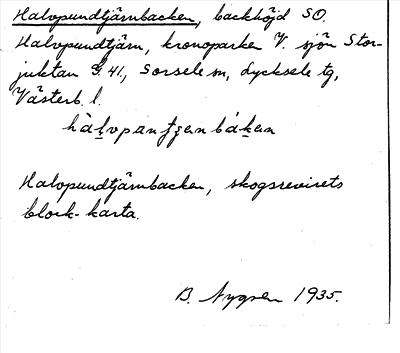 Halvpundtjärnbacken, backhöjd SO.
Halvpundtjärn, kronoparken V. sjön Stor-
juktan G. 41, Sorsele sn, Lycksele tg,
Västerb. l.
Halvpundtjärnbacken, skogsrevirets
block-karta.
B. Nygren 1935.